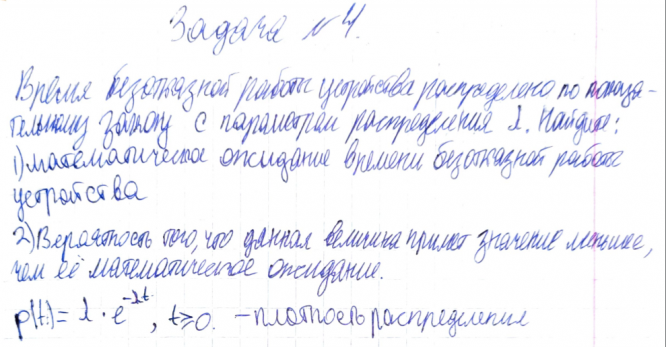 Задача №4.
Время безотказной работы устройства распределено по показа-
тельному закону с параметром распределения λ. Найдите:
1) математическое ожидание времени безотказной работы
устройства
2) Вероятность того, что данная величина примет значение меньше,
чем её математическое ожидание.
p(t) = λ · e^{-λt}, t ≥ 0. – плотность распределения